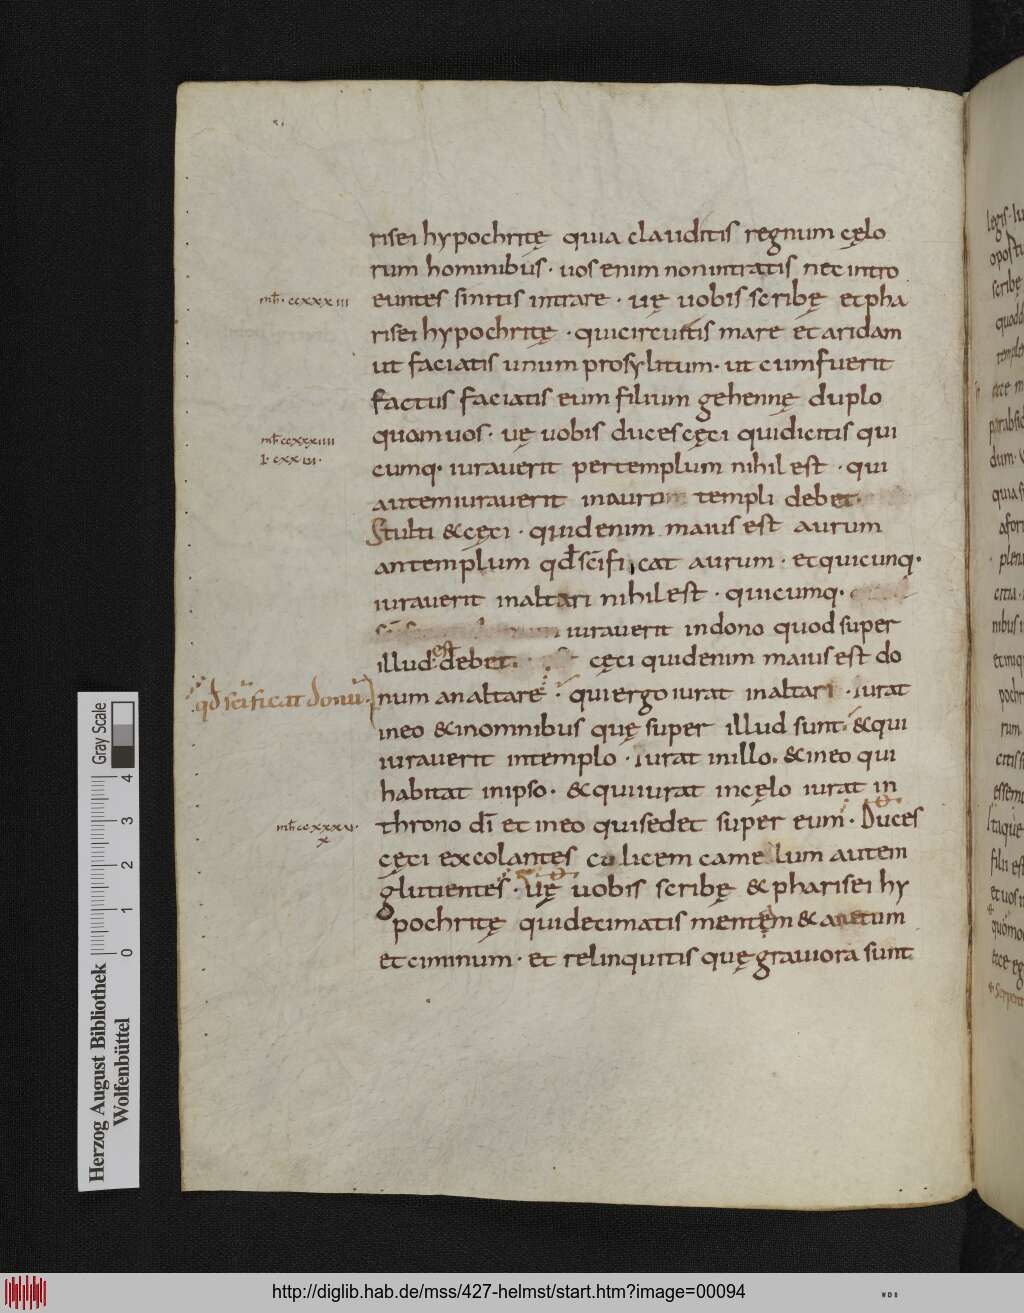 risei hypochritę quia clauditis regnum cęlo
rum hominibus · uos enim non intratis nec intro
mt̄ · ccxxxiii euntes sinitis intrare · uę uobis scribę et pha
risei hypochritę · qui circuitis mare et aridam
ut faciatis unum prosylitum · ut cum fuerit
factus faciatis eum filium gehennę duplo
mt̄ ccxxxiiii quam uos · uę uobis duces cęci qui dicitis qui
l · cxxxvi · cumq · iurauerit per templum nihil est · qui
autem iurauerit in auro templi debet ·
Stulti & cęci · quid enim maius est aurum
an templum qđ scīficat aurum · et quicunq ·
iurauerit in altari nihil est · quicumq ·
iurauerit in dono quod super
illud est debet · cęci quid enim maius est do
qđ scīficat donū num an altare · qui ergo iurat in altari · iurat
in eo & in omnibus quę super illud sunt · & qui
iurauerit in templo · iurat in illo · & in eo qui
habitat in ipso · & qui iurat in cęlo iurat in
mt̄ ccxxxv · throno dī et in eo qui sedet super eum · Duces
x
cęci excolantes culicem camelum autem
glutientes · Vę uobis scribę & pharisei hy
pochritę qui decimatis mentem & anetum
et ciminum · et relinquitis quę grauiora sunt
legis · 
scribę
Herzog August Bibliothek
Wolfenbüttel
Gray Scale
0 1 2 3 4
http://diglib.hab.de/mss/427-helmst/start.htm?image=00094
WDB